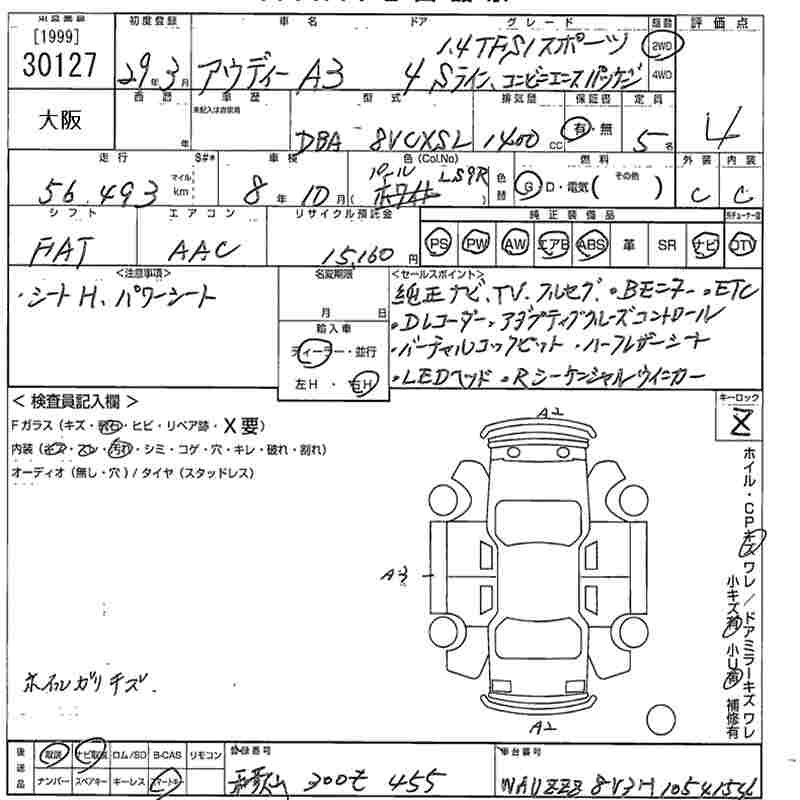 [1999] 初度登録 車名 ドア グレード 駆動 評価点
30127 29年3月 アウディー A3 4 1.4TFSIスポーツ 2WD
Sライン、コンビニエンスパッケージ 4WD
大阪 西暦 車歴 型式 排気量 保証書 定員 4
未記入は自家用
年 DBA 8VCXSL 1400cc 有・無 5名
走行 S#* 車検 色(Col.No) 色替 燃料 外装 内装
56,493 マイル km 8年10月 ホワイト LS9R G D・電気( その他 ) C C
シフト エアコン リサイクル預託金 純正装備品
FAT AAC 15,160円 PS PW AW エアB ABS 革 SR ナビ DTV
<注意事項> 名変期限 <セールスポイント>
・シートH、パワーシート
月 日
輸入車
ディーラー・並行
左H・右H
純正ナビ、TV、フルセグ・BEニター・ETC
・Dレコーダー・アダプティブクルーズコントロール
・バーチャルコックピット・ハーフレザーシート
・LEDヘッド・Rシーケンシャルウィンカー
<検査員記入欄> キーロック
Fガラス(キズ・飛石・ヒビ・リペア跡・X要)
内装(キズ・スレ・汚れ・シミ・コゲ・穴・キレ・破れ・割れ)
オーディオ(無し・穴)/タイヤ(スタッドレス)
A2
A3
A2
ホイルガリキズ.
ホイル・CPキズ ワレ/ドアミラーキズ ワレ
小キズ有 小U有 補修有
後送品 取説 ナビ取説 ロム/SD B-CAS リモコン 登録番号 車台番号
ナンバー スペアキー キーレス スマートキー 和歌山 300 455 WAUZZZ8V3H1054156